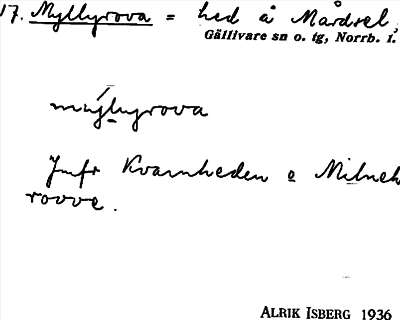 17. Myllyrova = hed å Mårdsel,
Gällivare sn o. tg, Norrb. l.
mýllyrova
Jmfr Kvarnheden o Milnek
rovve.
ALRIK ISBERG 1936